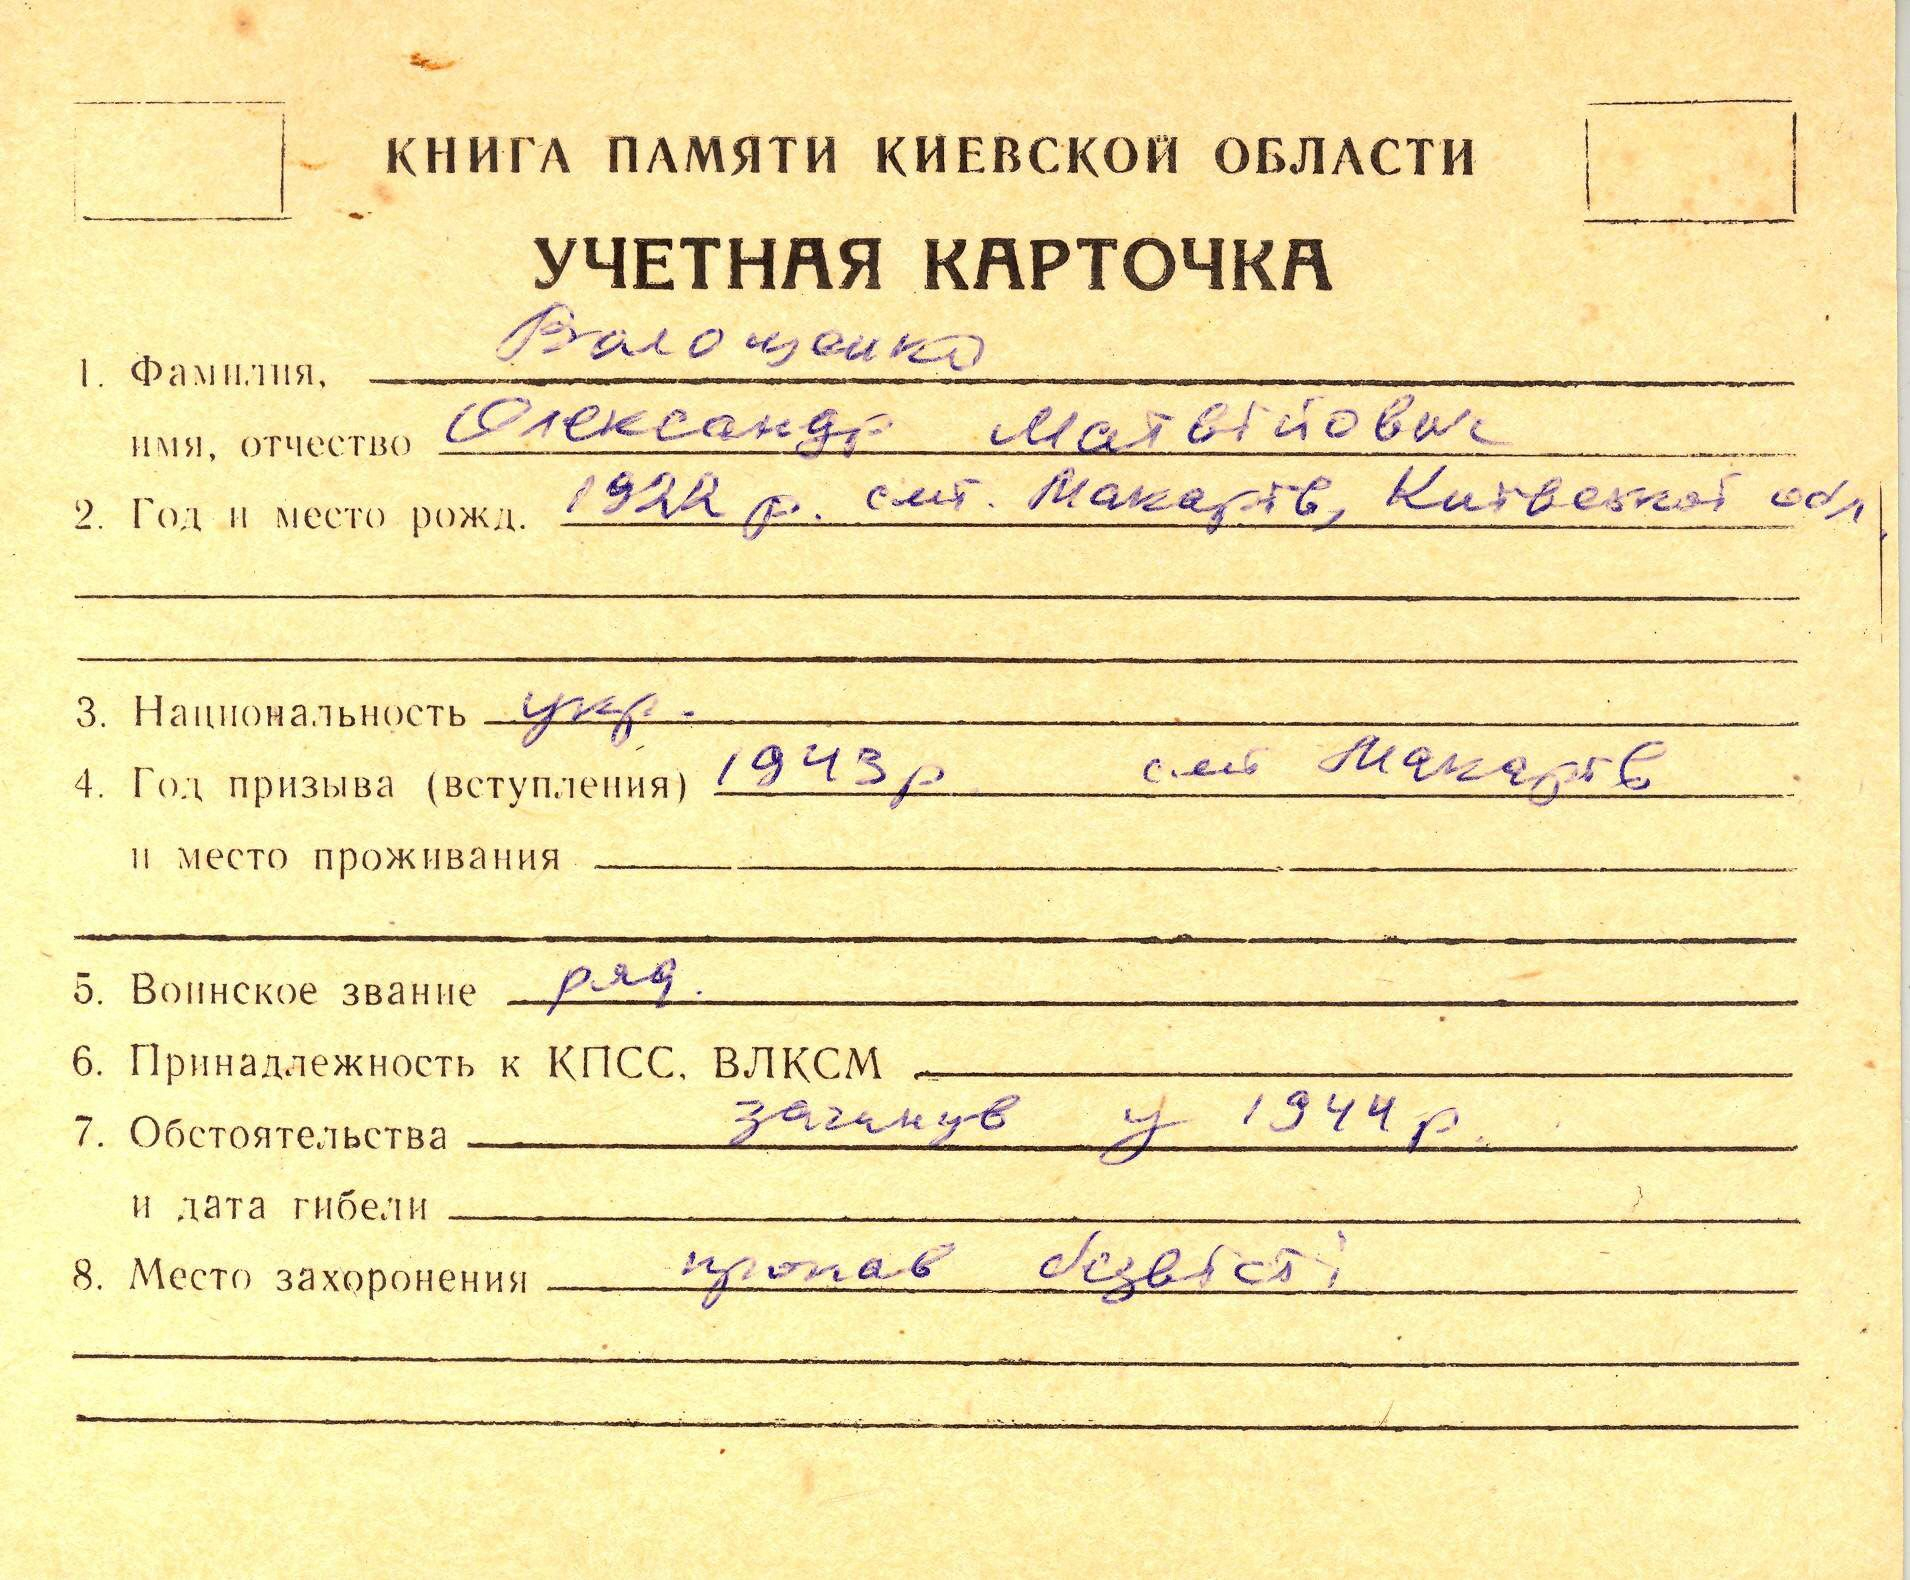 КНИГА ПАМЯТИ КИЕВСКОЙ ОБЛАСТИ
УЧЕТНАЯ КАРТОЧКА
1. Фамилия, Волощенко
имя, отчество Олександр Матвійович
2. Год и место рожд. 1922 р. смт. Макарів, Київської обл.
3. Национальность укр.
4. Год призыва (вступления) 1943 р смт Макарів
и место проживания
5. Воинское звание ряд.
6. Принадлежность к КПСС, ВЛКСМ
7. Обстоятельства загинув у 1944 р.
и дата гибели
8. Место захоронения пропав безвісті